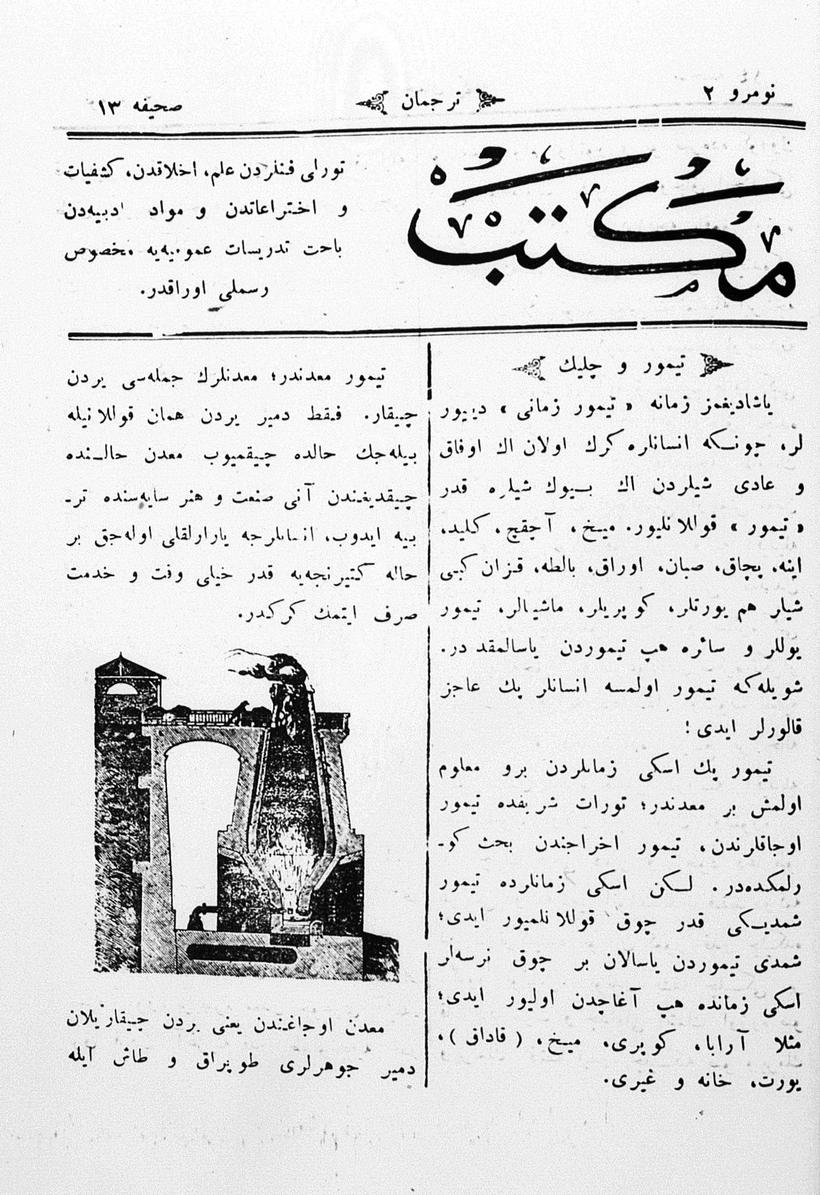 نومرو ٢
ترجمان
صحيفه ١٣
مكتب
تورلی فنلردن علم، اخلاقدن، كشفيات
و اختراعاتدن و مواد ادبيه‌دن
باحث تدريسات عموميه‌يه مخصوص
رسملی اوراقدر.
تيمور و چليك
ياشاديغمز زمانه « تيمور زمانی » دييور
لر، چونكه انسانلره كرك اولان اك اوفاق
و عادی شيلردن اك بيوك شيلره قدر
« تيمور » قوللانليور. ميخ، آچقچ، كليد،
اينه، پچاق، صبان، اوراق، بالطه، قزان كبی
شيلر هم يورتلر، كوپريلر، ماشينالر، تيمور
يوللر و سائره هپ تيموردن ياسالمقددر.
شويله‌كه تيمور اولمسه انسانلر پك عاجز
قالورلر ايدی!
تيمور پك اسكی زمانلردن برو معلوم
اولمش بر معدندر؛ تورات شريفده تيمور
اوجاقلرندن، تيمور اخراجندن بحث كو-
رلمكده‌در. لكن اسكی زمانلرده تيمور
شمديكی قدر چوق قوللانلميور ايدی؛
شمدی تيموردن ياسالان بر چوق نرسه‌لر
اسكی زمانده هپ آغاچدن اوليور ايدی؛
مثلا آرابا، كوپری، ميخ، ( قاداق )،
يورت، خانه و غيری.
تيمور معدندر؛ معدنلرك جمله‌سی يردن
چيقار. فقط دمير يردن همان قوللانيله
بيله‌جك حالده چيقميوب معدن حالنده
چيقديغندن آنی صنعت و هنر سايه‌سنده تر-
بيه ايدوب، انسانلرجه يارارلقلی اوله‌جق بر
حاله كتيرنجه‌يه قدر خيلی وقت و خدمت
صرف ايتمك كركدر.
معدن اوجاغندن يعنی يردن چيقاريلان
دمير جوهرلری طوپراق و طاش ايله